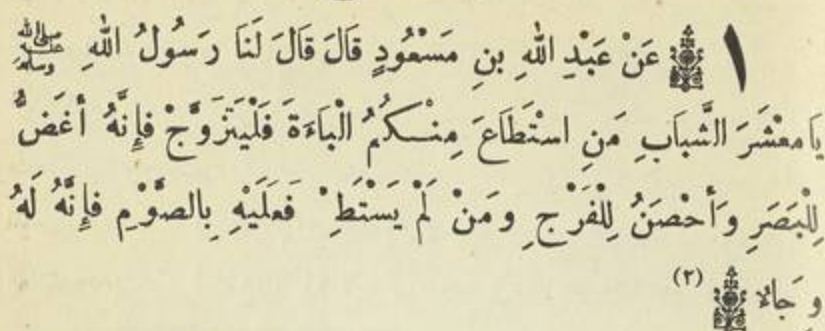 ١ عَنْ عَبْدِ اللهِ بنِ مَسْعُودٍ قَالَ قَالَ لَنَا رَسُولُ اللهِ ﷺ
يَا مَعْشَرَ الشَّبابِ مَنِ اسْتَطَاعَ مِنْكُمُ الْبَاءَةَ فَلْيَتَزَوَّجْ فإِنَّهُ أَغَضُّ
لِلْبَصَرِ وَأَحْصَنُ لِلْفَرْجِ ومَنْ لَمْ يَسْتَطِـْ فَعَلَيْهِ بِالصَّوْمِ فإِنَّهُ لَهُ
وِجَاءٌ (٢)